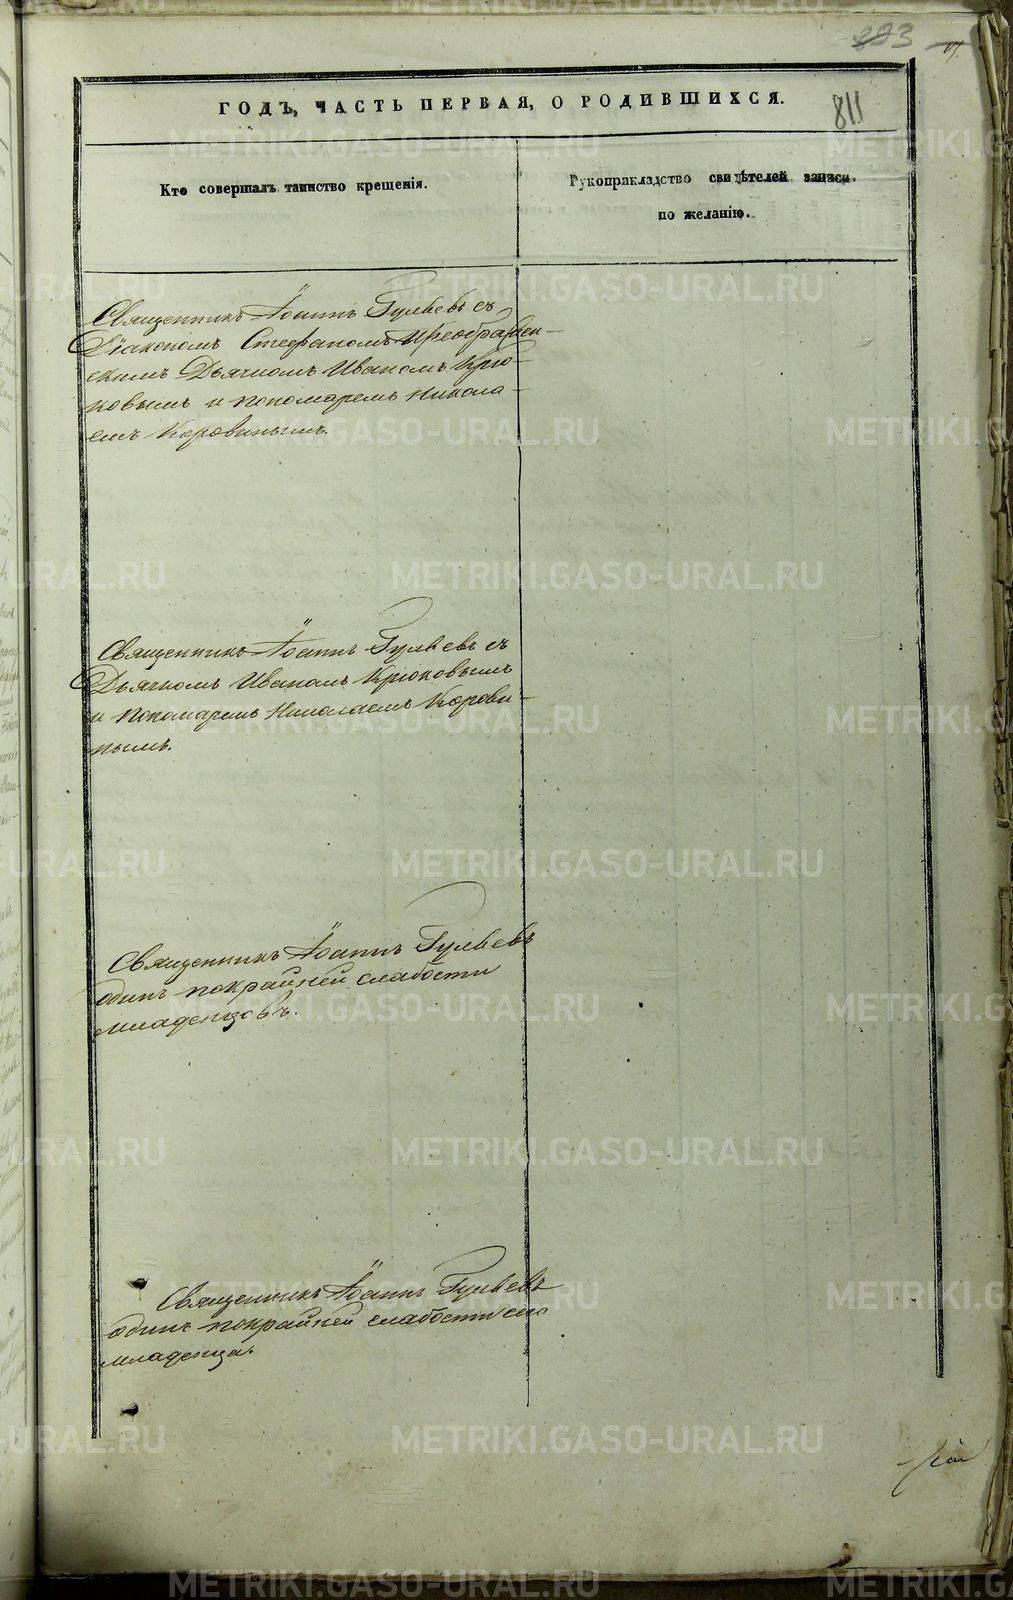 223
ГОДЪ, ЧАСТЬ ПЕРВАЯ, О РОДИВШИХСЯ.
811
Кто совершалъ таинство крещенія.
Рукоприкладство свидѣтелей записи
по желанію.
Священникъ Іоаннъ Гуляевъ съ
Діакономъ Стефаномъ Преображен-
скимъ Дьячкомъ Иваномъ Крю-
ковымъ и пономаремъ Никола-
емъ Коровинымъ.
Священникъ Іоаннъ Гуляевъ съ
Дьячкомъ Иваномъ Крюковымъ
и пономаремъ Николаемъ Корови-
нымъ.
Священникъ Іоаннъ Гуляевъ
одинъ по крайней слабости
младенцовъ.
Священникъ Іоаннъ Гуляевъ
одинъ по крайней слабости сего
младенца.
METRIKI.GASO-URAL.RU